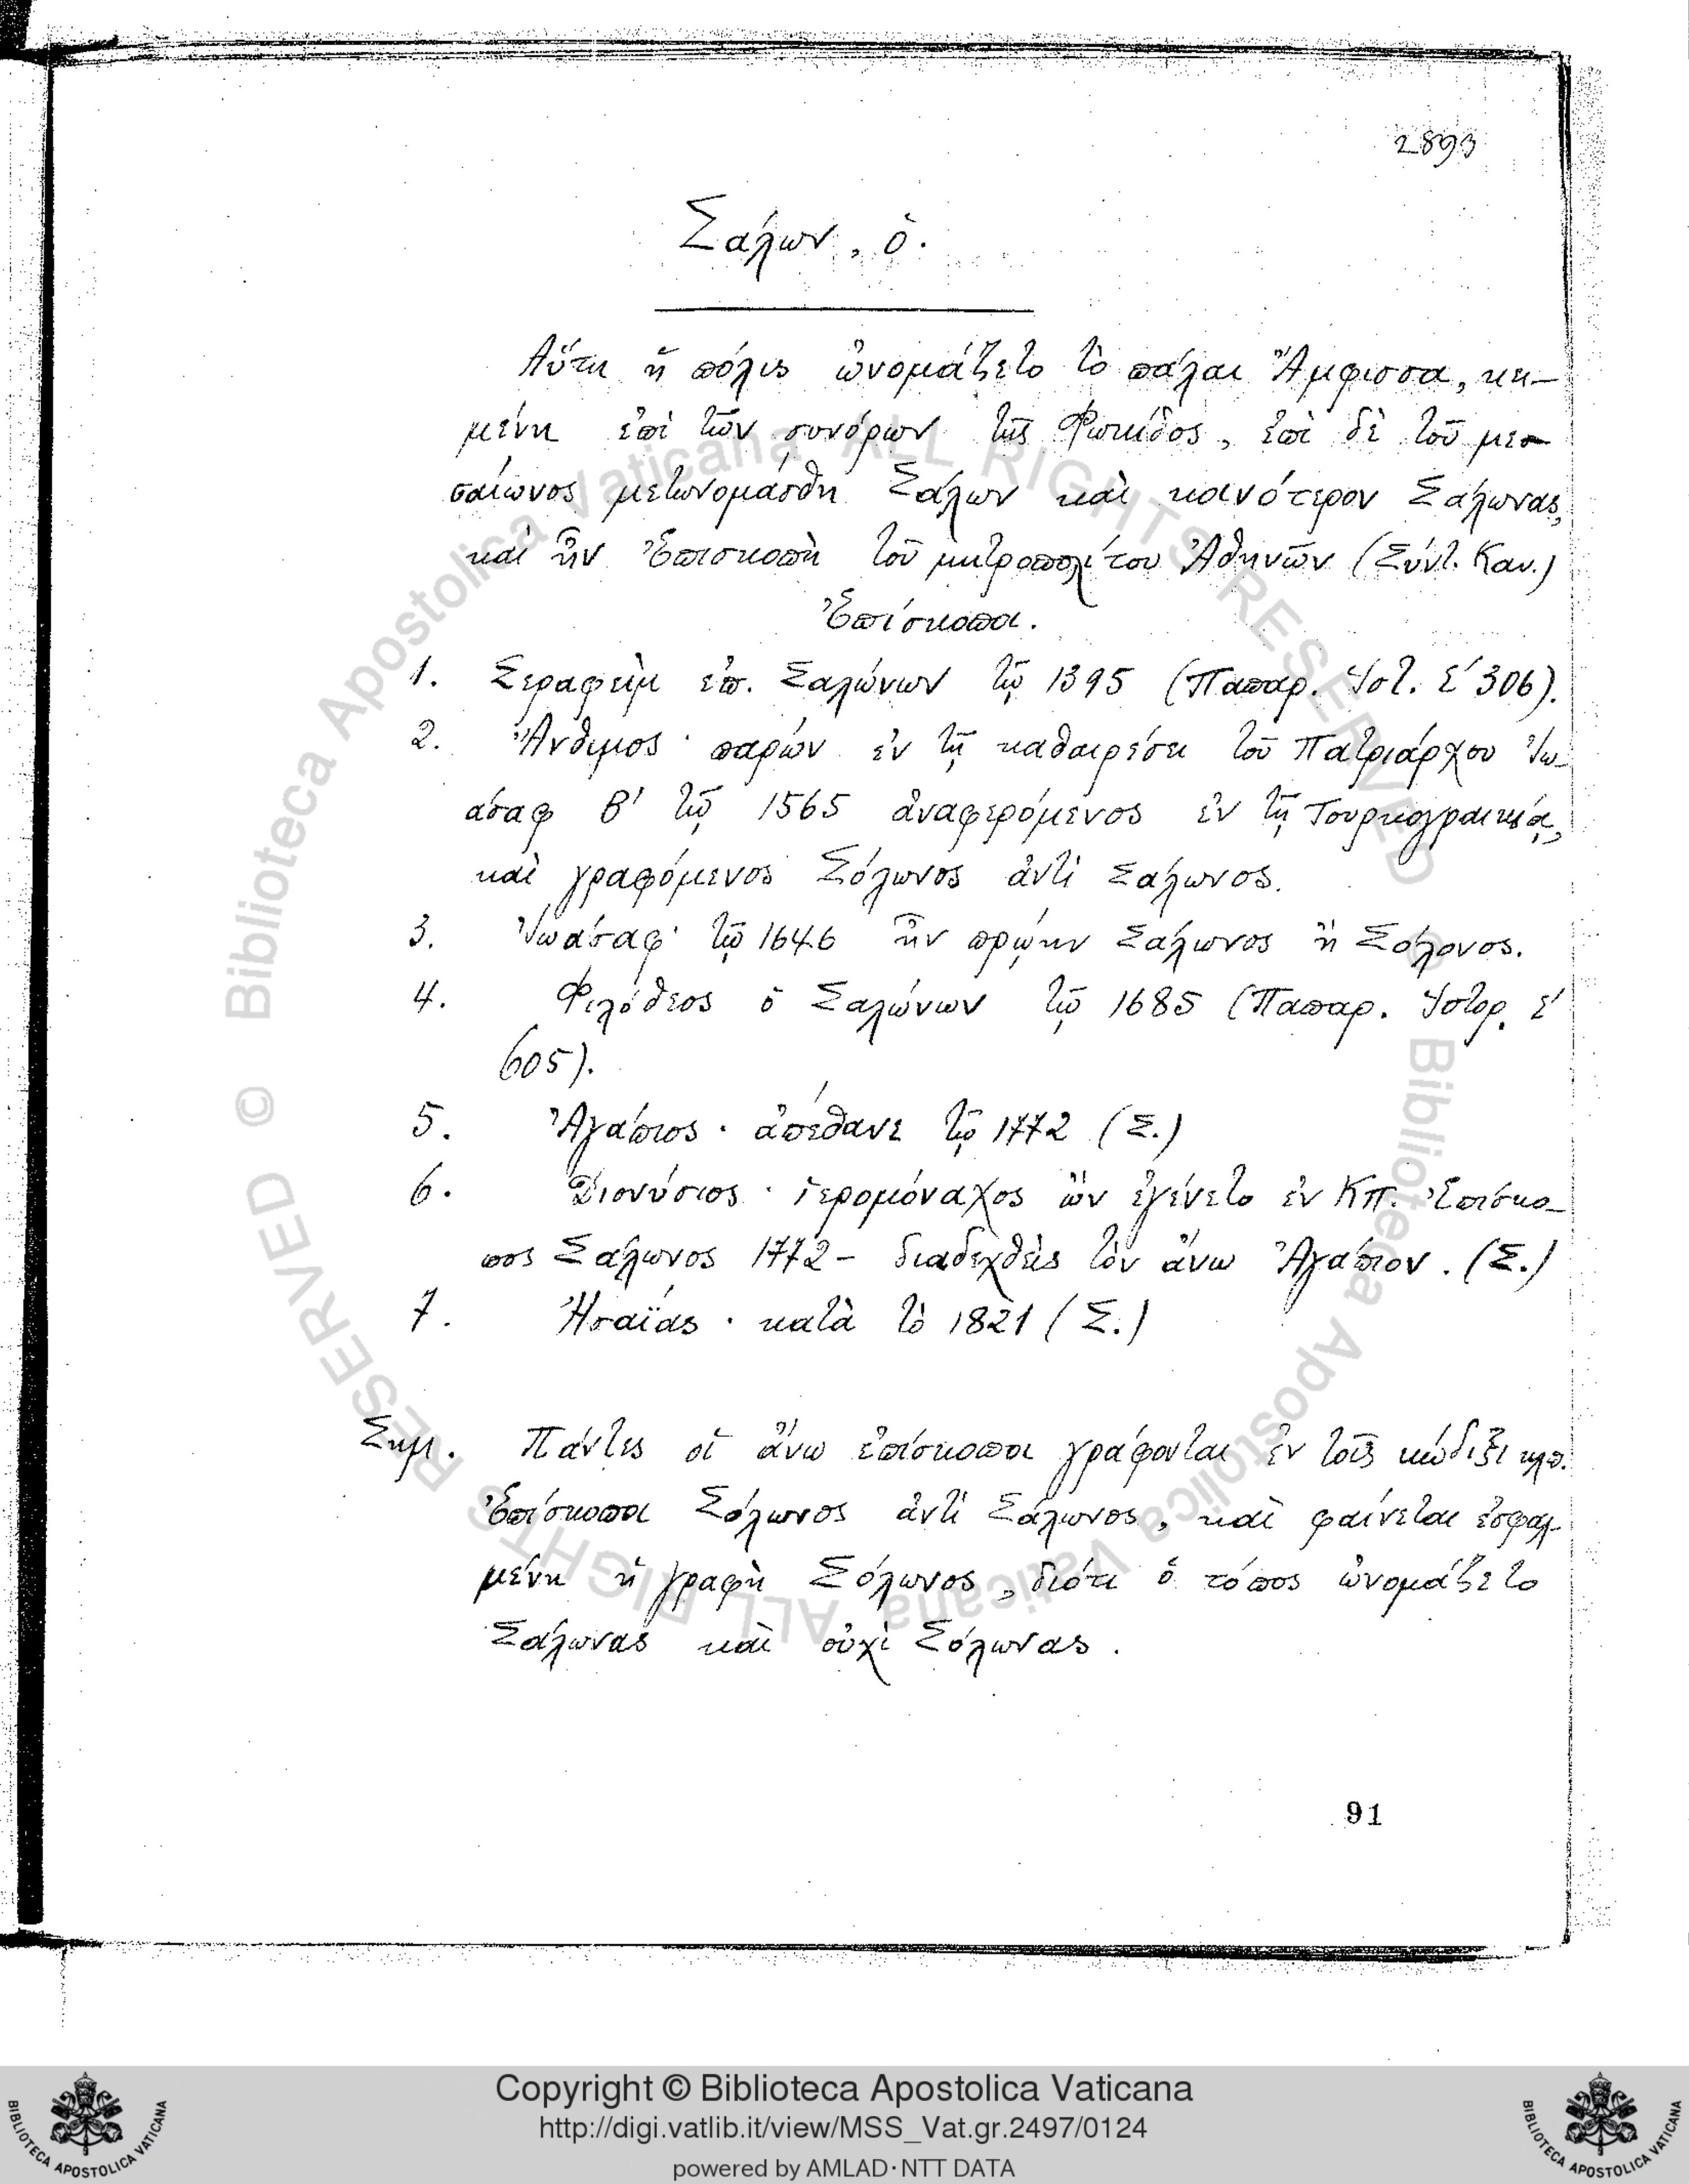 2893
Σάλων, ὁ.
Αὕτη ἡ πόλις ὠνομάζετο τὸ πάλαι Ἄμφισσα, κει-
μένη ἐπὶ τῶν συνόρων τῆς Φωκίδος, ἐπὶ δὲ τοῦ με-
σαίωνος μετωνομάσθη Σάλων καὶ κοινότερον Σάλωνας,
καὶ ἦν Ἐπισκοπὴ τοῦ μητροπολίτου Ἀθηνῶν (Σύντ. Καν.)
Ἐπίσκοποι.
1. Σεραφεὶμ ἐπ. Σαλώνων τῷ 1395 (Παπαρ. Ἱστ. Ε΄ 306).
2. Ἄνθιμος · παρὼν ἐν τῇ καθαιρέσει τοῦ Πατριάρχου Ἰω-
άσαφ Β΄ τῷ 1565 ἀναφερόμενος ἐν τῇ Τουρκογραικίᾳ,
καὶ γραφόμενος Σόλωνος ἀντὶ Σάλωνος.
3. Ἰωάσαφ · τῷ 1646 ἦν πρῴην Σάλωνος ἢ Σόλονος.
4. Φιλόθεος ὁ Σαλώνων τῷ 1685 (Παπαρ. Ἱστορ. Ε΄
605).
5. Ἀγάπιος · ἀπέθανε τῷ 1772 (Σ.)
6. Διονύσιος · ἱερομόναχος ὢν ἐγένετο ἐν ΚΠ. Ἐπίσκο-
πος Σάλωνος 1772 – διαδεχθεὶς τὸν ἄνω Ἀγάπιον. (Σ.)
7. Ἠσαΐας · κατὰ τὸ 1821 (Σ.)
Σημ. Πάντες οἱ ἄνω ἐπίσκοποι γράφονται ἐν τοῖς κώδιξι κλπ.
Ἐπίσκοποι Σόλωνος ἀντὶ Σάλωνος, καὶ φαίνεται ἐσφαλ-
μένη ἡ γραφὴ Σόλωνος, διότι ὁ τόπος ὠνομάζετο
Σάλωνας καὶ οὐχὶ Σόλωνας.
91
© Biblioteca Apostolica Vaticana ALL RIGHTS RESERVED
© Biblioteca Apostolica Vaticana ALL RIGHTS RESERVED
Copyright © Biblioteca Apostolica Vaticana
http://digi.vatlib.it/view/MSS_Vat.gr.2497/0124
powered by AMLAD·NTT DATA
BIBLIOTECA APOSTOLICA VATICANA
BIBLIOTECA APOSTOLICA VATICANA